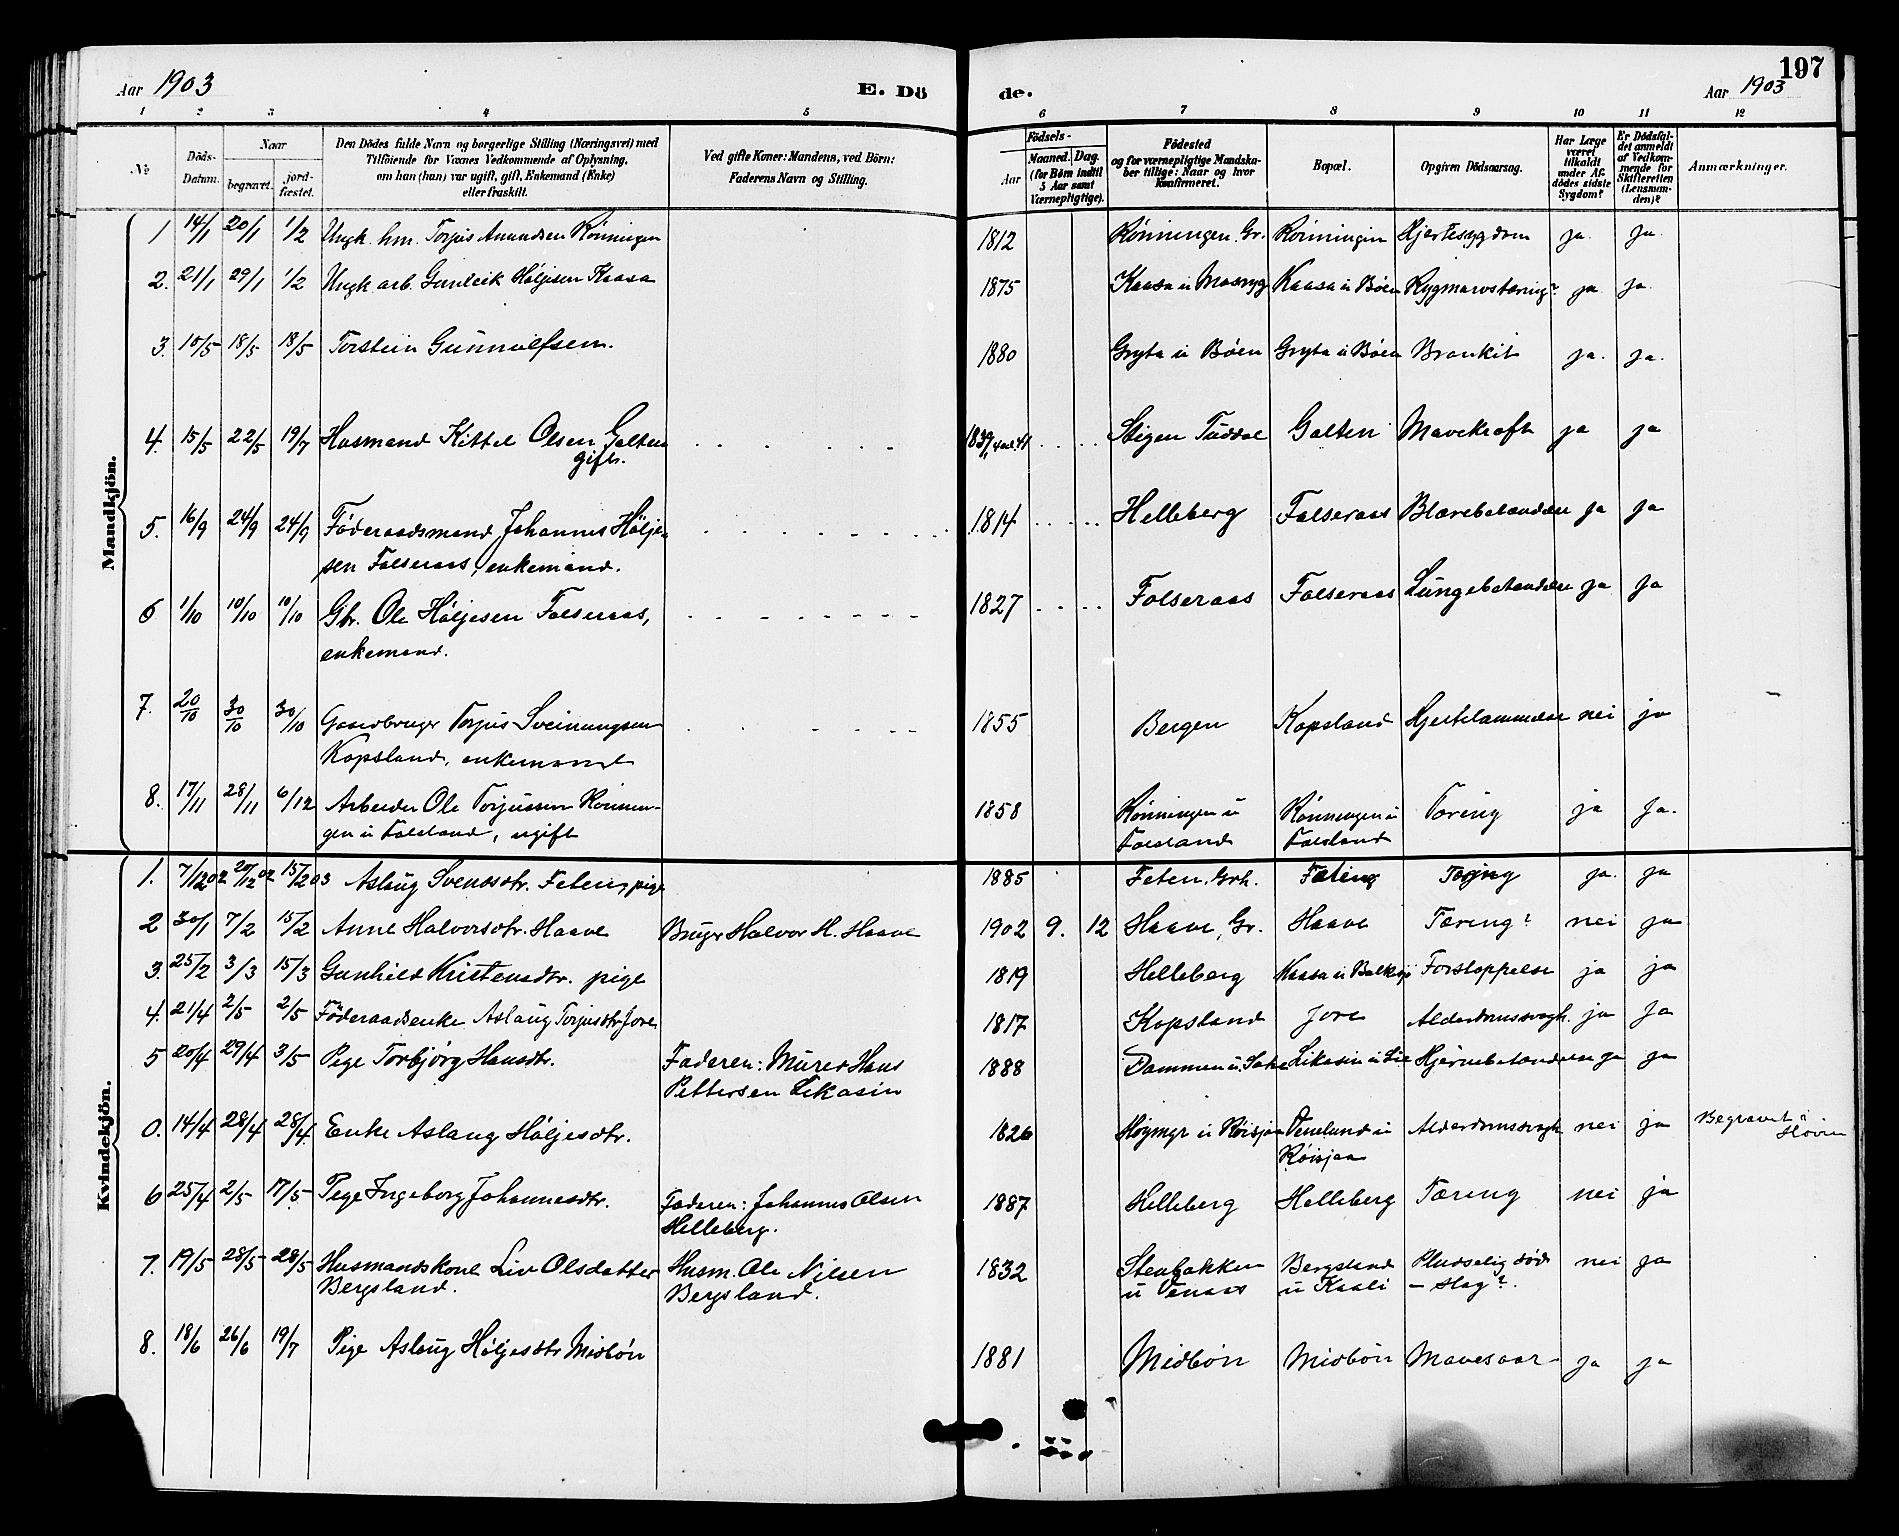 Aar 1903
E. Dö
de.
197
Aar 1903
1 2 3 4 5 6 7 8 9 10 11 12
No
Döds-
Datum.
Naar
begravet.
jord-
fæstet.
Den Dödes fulde Navn og borgerlige Stilling (Næringsvei) med
Tilföiende for Voxnes Vedkommende af Oplysning,
om han (hun) var ugift, gift, Enkemand (Enke)
eller fraskilt.
Ved gifte Koner: Mandens, ved Börn:
Faderens Navn og Stilling.
Födsels-
Aar
Maaned. Dag.
(for Börn indtil
5 Aar samt
Værnepligtige).
Födested
og for værnepligtige Mandska-
ber tillige: Naar og hvor
konfirmeret.
Bopæl.
Opgiven Dödsaarsag.
Har Læge
været
tilkaldt
under Af-
dödes sidste
Sygdom?
Er Dödsfal-
det anmeldt
af Vedkom-
mende for
Skifteretten
(Lensman-
den)?
Anmærkninger.
Mandkjön.
1 14/1 20/1 1/2 Ungk. hm. Torjus Amundsen Rönningen 1812 Rönningen. Gr. Rönningen Hjertesygdom ja. ja.
2. 21/1 29/1 1/2 Ungk. arb. Gunleik Höljesen Kaasa 1875 Kaasa u Kaasa u Böen Rygmarvstæring? ja ja.
3. 10/5 18/5 18/5 Torstein Gunnulfsen. 1880 Gryta u Böen Gryta u Böen Bronkit ja. ja.
4. 15/5 22/5 19/7 Husmand Kittel Olsen Galten
gift. 1839 Stigen Tuddal Galten Mavekræft ja ja
5. 16/9 24/9 24/9 Föderaadsmand Johannes Hölje-
sen Folseraas, enkemand. 1814 Helleberg Folseraas Blærebetændelse ja ja
6 1/10 10/10 10/10 Gbr. Ole Höljesen Folseraas,
enkemand. 1827 Folseraas Folseraas Lungebetændelse ja ja
7. 20/10 30/10 30/10 Gaardbruger Torjus Sveinungsen
Kopsland, enkemand 1855 Bergen Kopsland Hjertelammelse nei ja
8. 17/11 28/11 6/12 Arbeider Ole Torjussen Rönnin-
gen u Folsland, ugift 1858 Rönningen u
Folsland Rönningen u
Folsland Tæring ja ja.
Kvindekjön.
1. 7/12 02 20/12 02 15/2 03 Aslaug Svensdtr. Feten, pige 1885 Feten. Grh. Feten Tæring ja. ja
2 30/1 7/2 15/2 Anne Halvorsdtr. Haave Bruger Halvor H. Haave 1902 9. 12 Haave, Gr. Haave Tæring? nei ja
3. 25/2 3/3 15/3 Gunhild Kristensdtr. pige 1819 Helleberg Kaasa u Forstoppelse ja ja
4. 21/4 2/5 2/5 Föderaadsenke Aslaug Torjusdtr Jore 1817 Kopsland Jore Alderdomssvagh. ja ja
5 20/4 29/4 3/5 Pige Torbjörg Hansdtr. Faderen: Murer Hans
Pettersen Likasin 1888 Dammen u. Likasin u Lie Hjernebetændelse ja ja
0. 14/4 28/4 28/4 Enke Aslaug Höljesdtr. 1826 Höymyr u Röisjaa Veneland u
Röisjaa Alderdomssvagh nei ja Begravet i
Hovin
6 25/4 2/5 17/5 Pige Ingeborg Johannesdtr. Faderen: Johannes Olsen
Helleberg. 1887 Helleberg Helleberg Tæring nei ja
7. 19/5 28/5 28/5 Husmandskone Liv Olsdatter
Bergsland. Husm. Ole Nilsen
Bergsland. 1832 Stenbakken
u Venaas Bergsland
u Kaali Pludselig död
– slag?. nei ja
8. 18/6 26/6 19/7 Pige Aslaug Höljesdtr Midbön 1881 Midbön Midbön Mavesaar ja ja